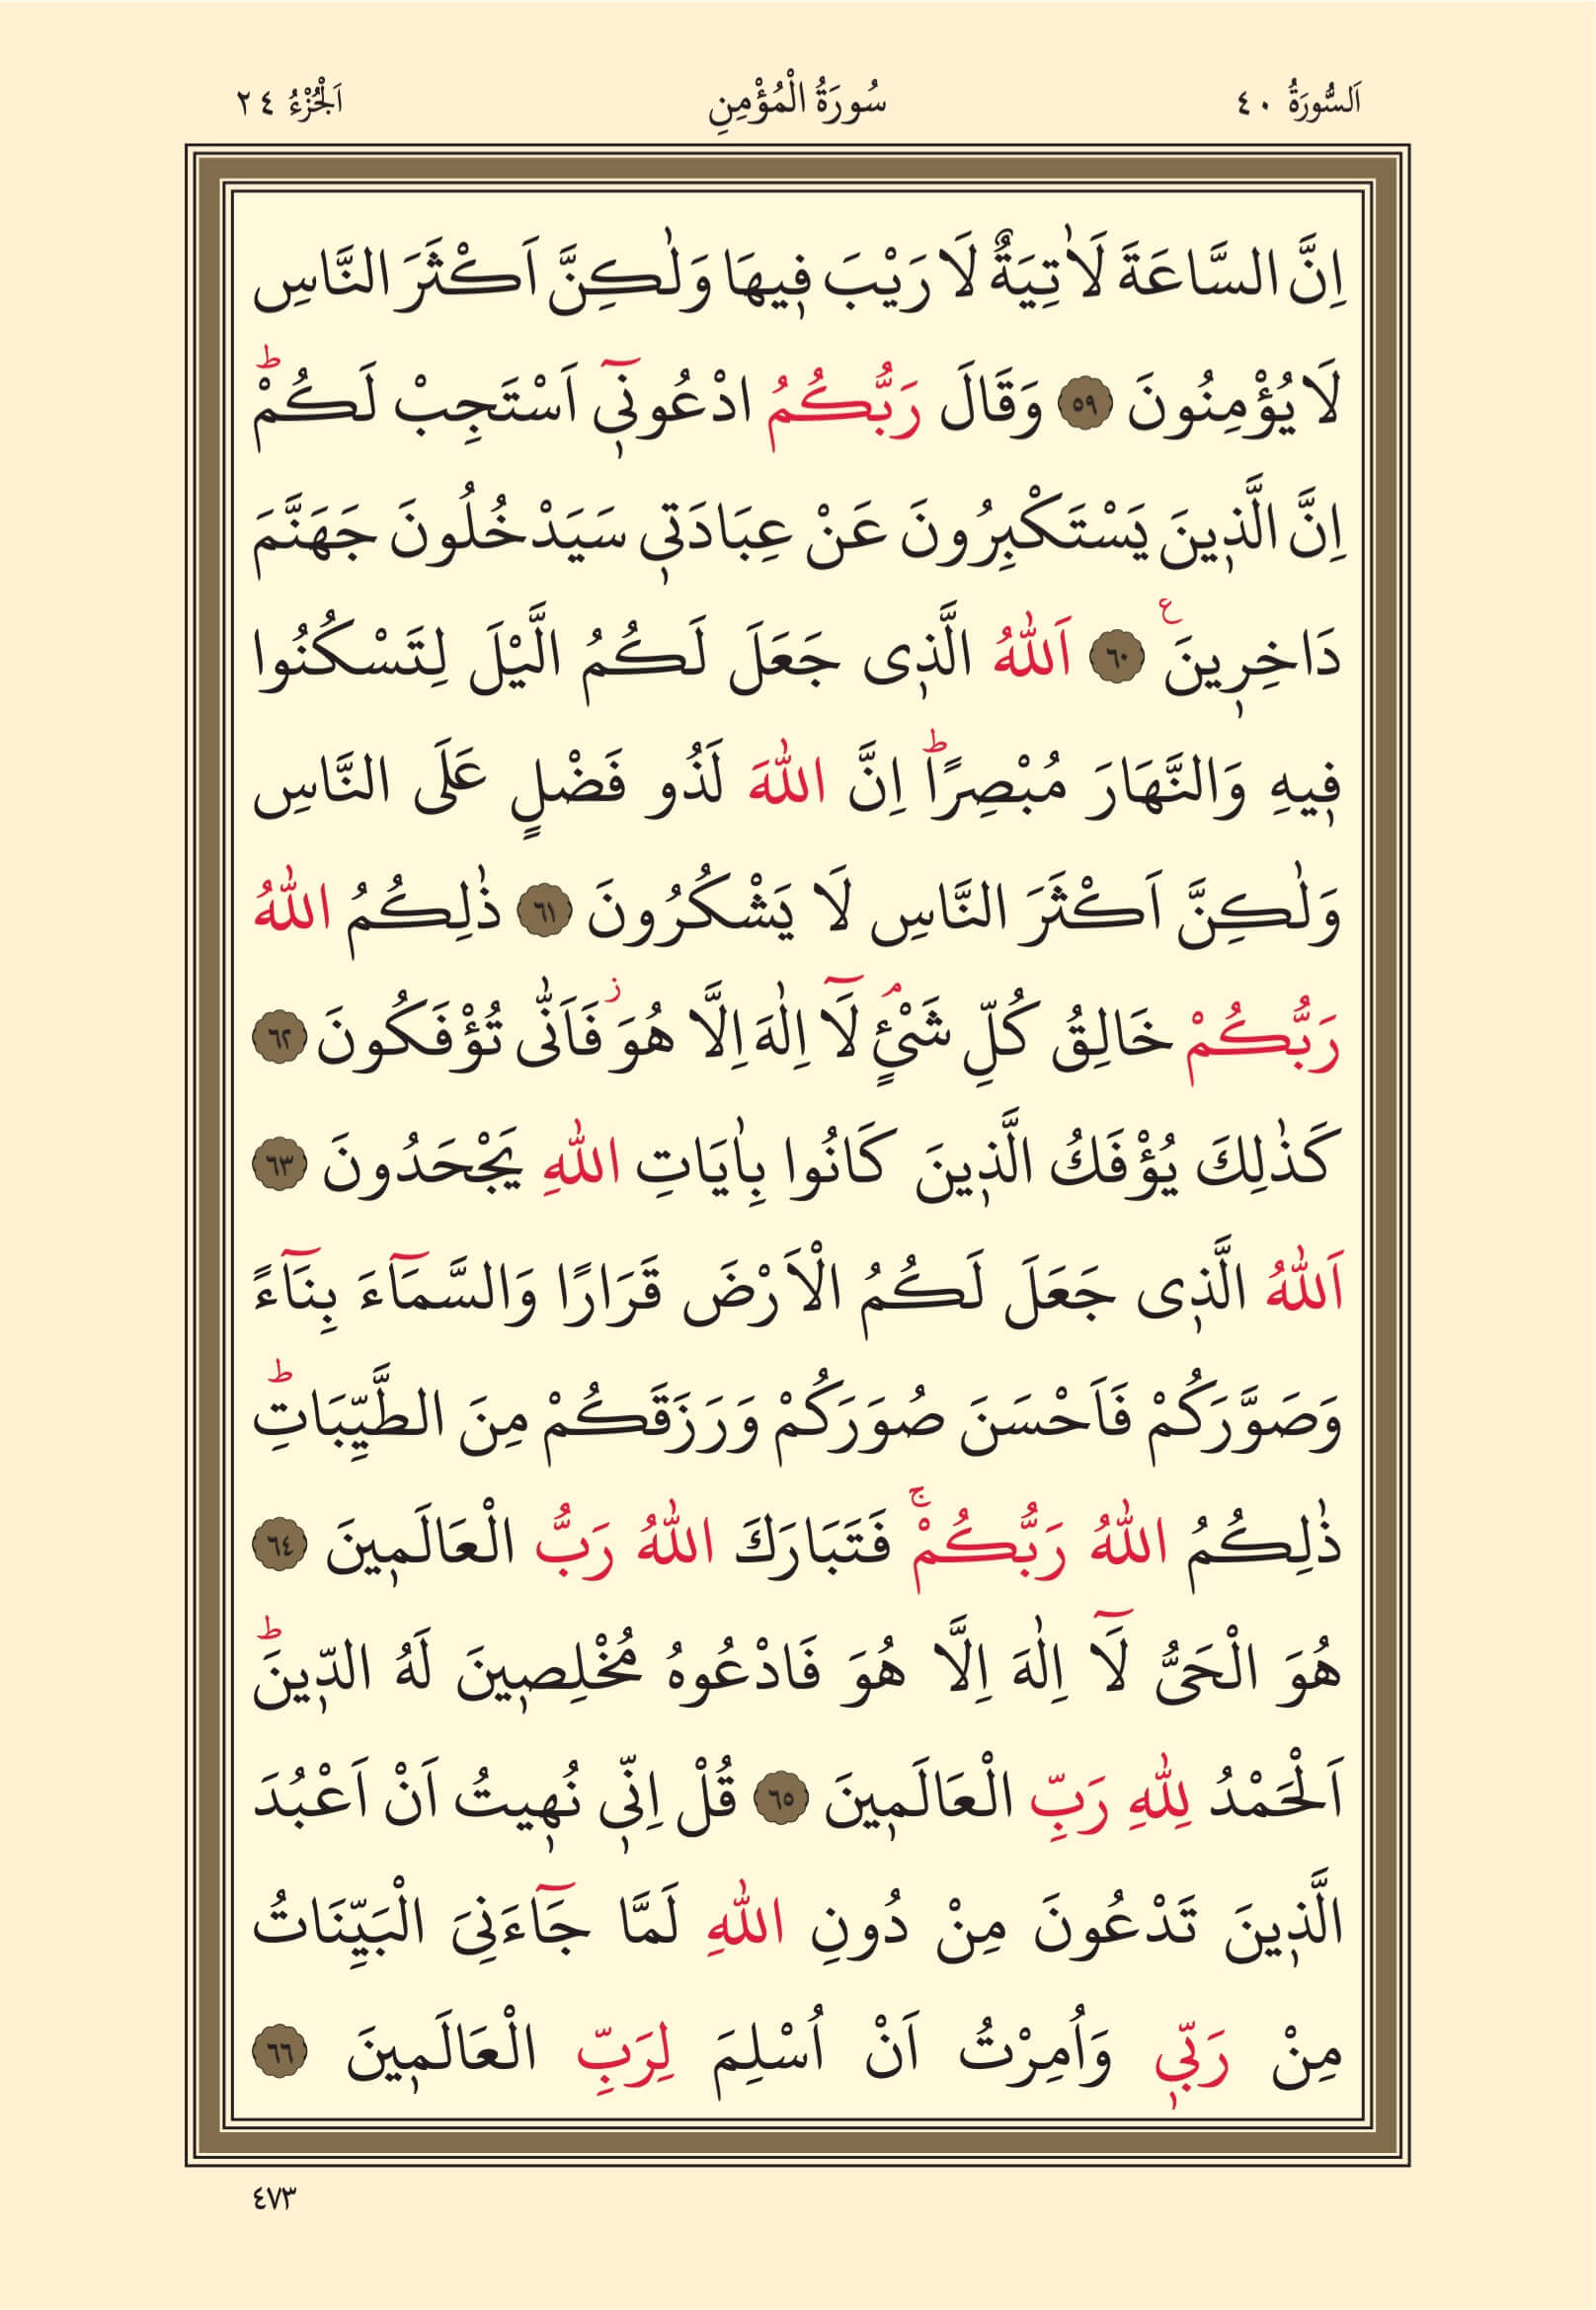 اَلسُّورَةُ ٤٠ سُورَةُ الْمُؤْمِنِ اَلْجُزْءُ ٢٤
اِنَّ السَّاعَةَ لَاٰتِيَةٌ لَا رَيْبَ ف۪يهَا وَلٰكِنَّ اَكْثَرَ النَّاسِ
لَا يُؤْمِنُونَ ٥٩ وَقَالَ رَبُّكُمُ ادْعُون۪ٓي اَسْتَجِبْ لَكُمْۜ ط
اِنَّ الَّذ۪ينَ يَسْتَكْبِرُونَ عَنْ عِبَادَت۪ي سَيَدْخُلُونَ جَهَنَّمَ
دَاخِر۪ينَ ع ٦٠ اَللّٰهُ الَّذ۪ى جَعَلَ لَكُمُ الَّيْلَ لِتَسْكُنُوا
ف۪يهِ وَالنَّهَارَ مُبْصِرًا ط اِنَّ اللّٰهَ لَذُو فَضْلٍ عَلَى النَّاسِ
وَلٰكِنَّ اَكْثَرَ النَّاسِ لَا يَشْكُرُونَ ٦١ ذٰلِكُمُ اللّٰهُ
رَبُّكُمْ خَالِقُ كُلِّ شَيْءٍ م لَٓا اِلٰهَ اِلَّا هُوَ ز فَاَنّٰى تُؤْفَكُونَ ٦٢
كَذٰلِكَ يُؤْفَكُ الَّذ۪ينَ كَانُوا بِاٰيَاتِ اللّٰهِ يَجْحَدُونَ ٦٣
اَللّٰهُ الَّذ۪ى جَعَلَ لَكُمُ الْاَرْضَ قَرَارًا وَالسَّمَٓاءَ بِنَٓاءً
وَصَوَّرَكُمْ فَاَحْسَنَ صُوَرَكُمْ وَرَزَقَكُمْ مِنَ الطَّيِّبَاتِ ط
ذٰلِكُمُ اللّٰهُ رَبُّكُمْ ج فَتَبَارَكَ اللّٰهُ رَبُّ الْعَالَم۪ينَ ٦٤
هُوَ الْحَىُّ لَٓا اِلٰهَ اِلَّا هُوَ فَادْعُوهُ مُخْلِص۪ينَ لَهُ الدّ۪ينَ ط
اَلْحَمْدُ لِلّٰهِ رَبِّ الْعَالَم۪ينَ ٦٥ قُلْ اِنّ۪ي نُه۪يتُ اَنْ اَعْبُدَ
الَّذ۪ينَ تَدْعُونَ مِنْ دُونِ اللّٰهِ لَمَّا جَٓاءَنِىَ الْبَيِّنَاتُ
مِنْ رَبّ۪ي وَاُمِرْتُ اَنْ اُسْلِمَ لِرَبِّ الْعَالَم۪ينَ ٦٦
٤٧٣